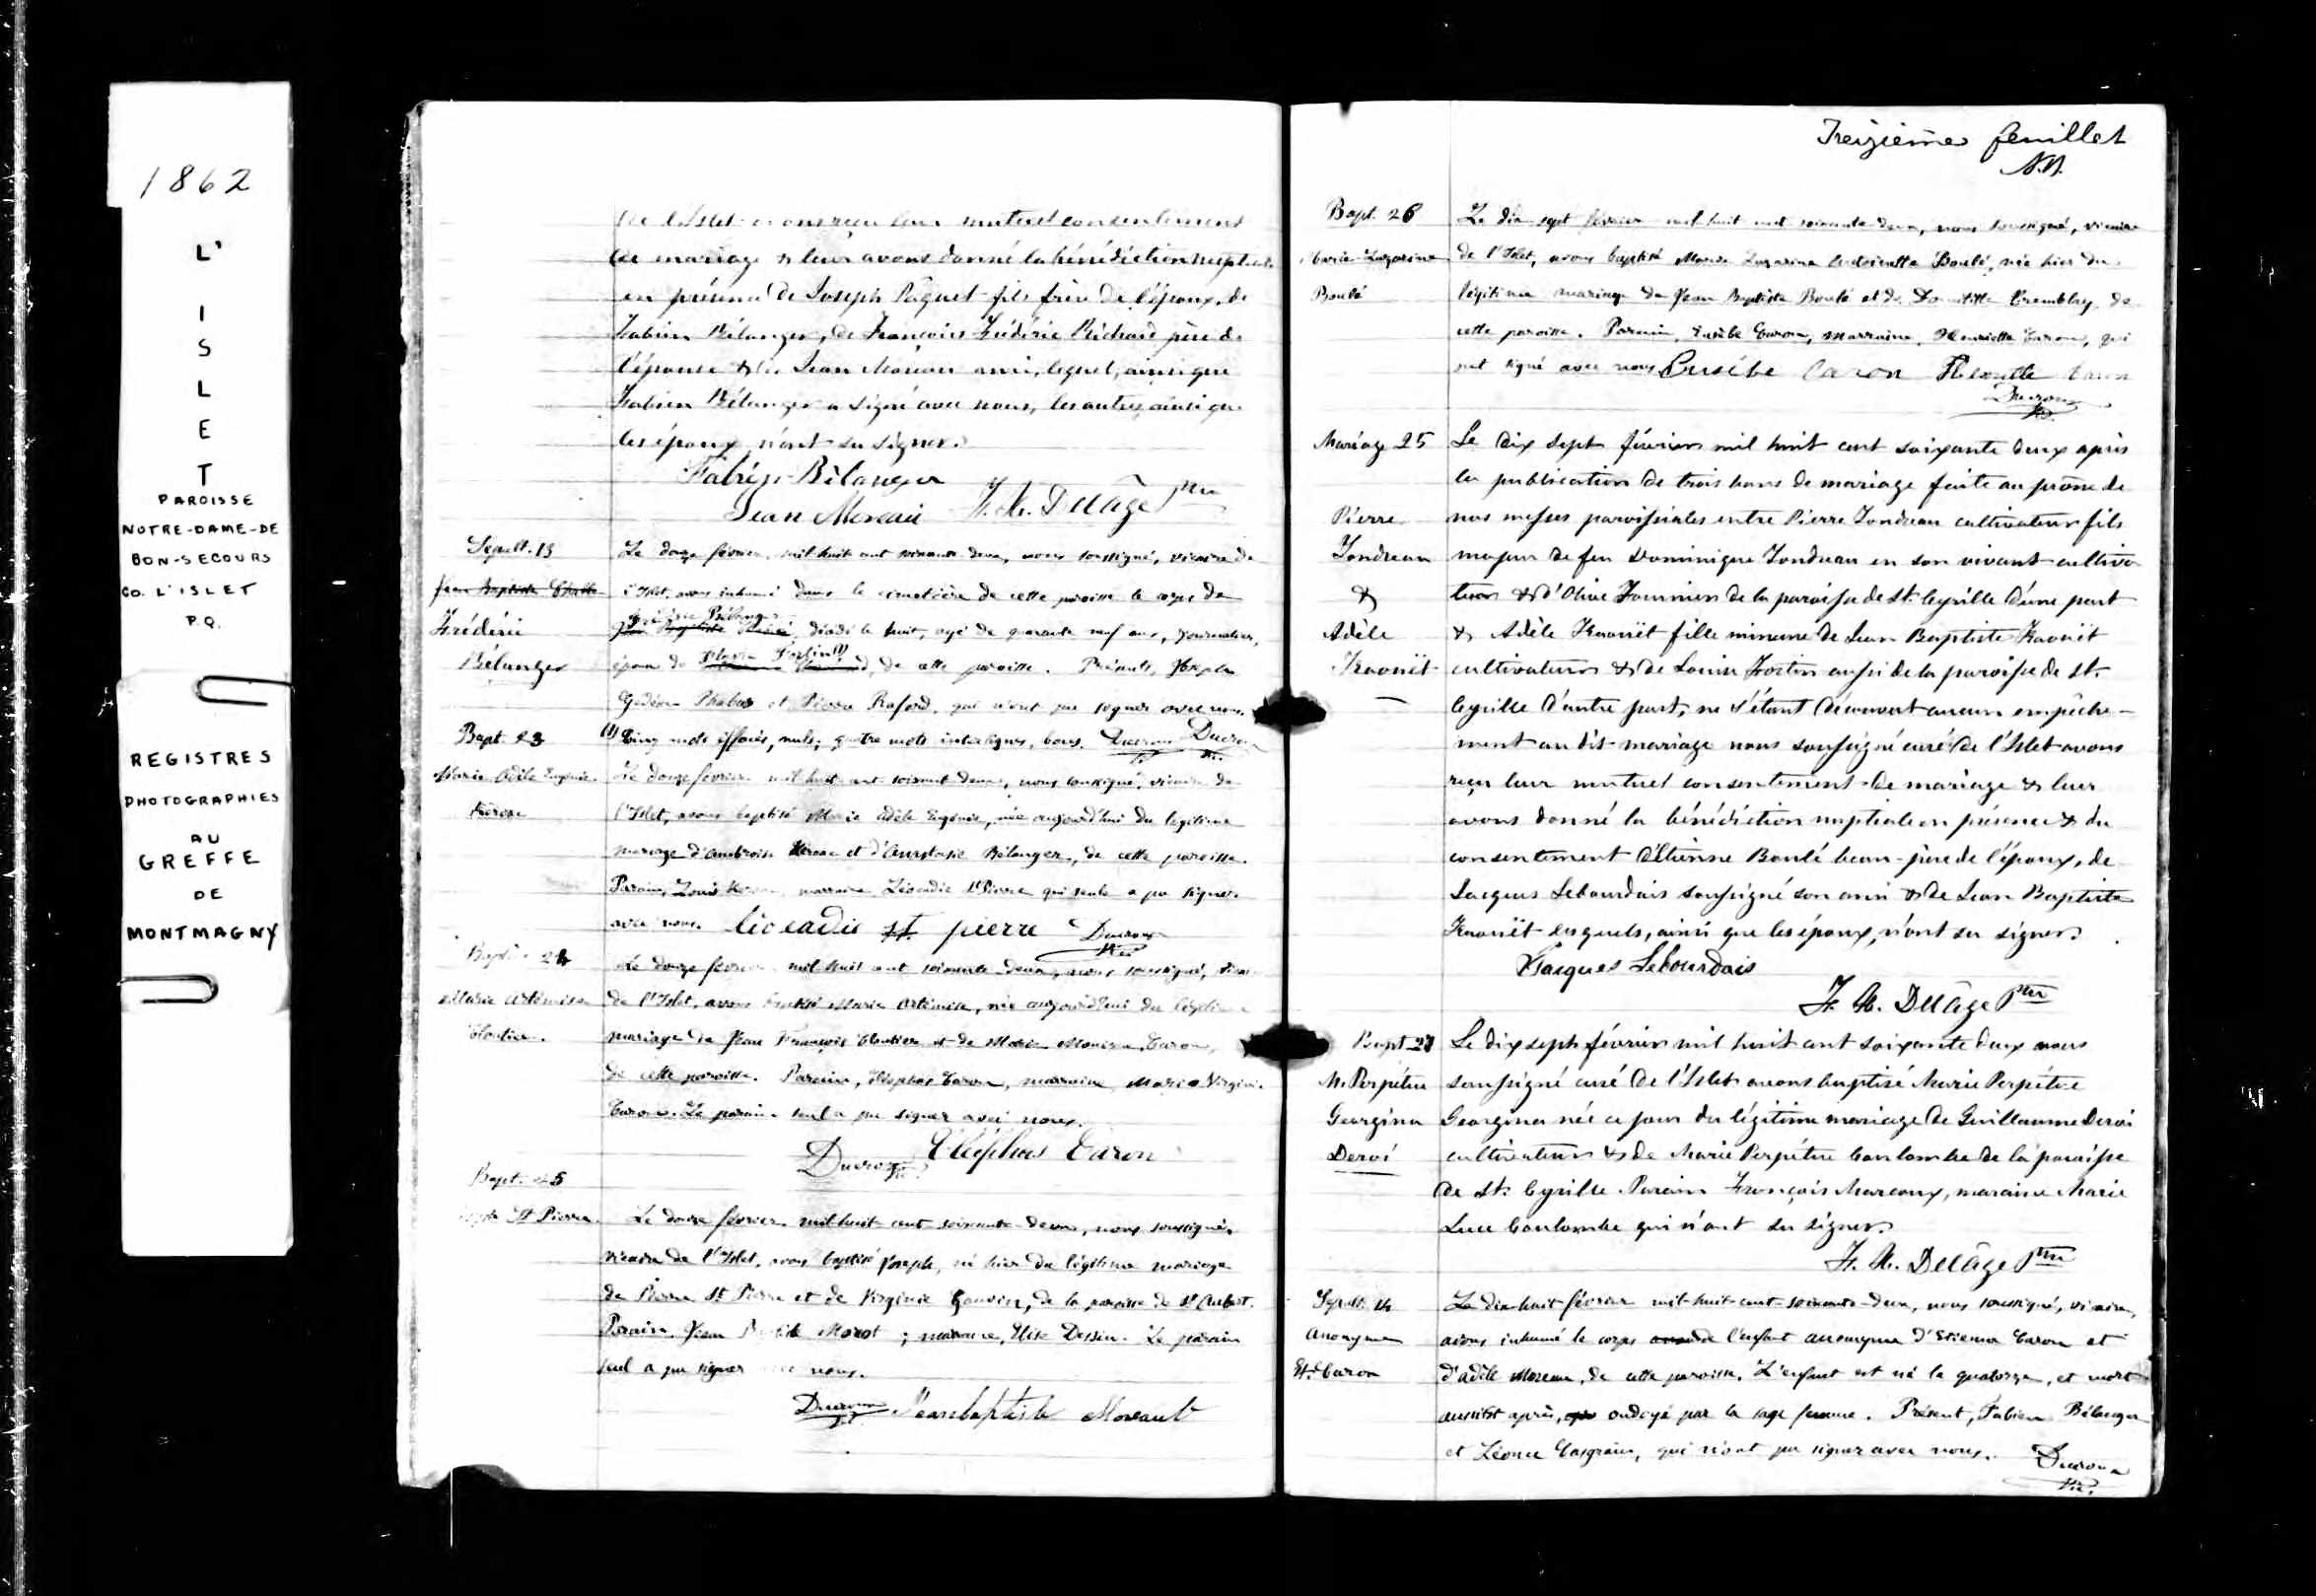 1862
L'
I
S
L
E
T
PAROISSE
NOTRE-DAME-DE
BON-SECOURS
CO. L'ISLET
P.Q.
REGISTRES
PHOTOGRAPHIES
AU
GREFFE
DE
MONTMAGNY
de l'Islet avons reçu leur mutuel consentement
de mariage & leur avons donné la bénédiction nuptiale
en présence de Joseph Pâquet fils frère de l'époux, de
Fabien Bélanger, de François Frédéric Richard père de
l'épouse & de Jean Moreau ami, lequel, ainsi que
Fabien Bélanger a signé avec nous, les autres, ainsi que
les époux n'ont su signer.
Fabien Bélanger
Jean Moreau F. X. Delâge Ptre
Sépult. 13
Jean Baptiste
Frédéric
Bélanger
Le douze février mil-huit cent soixante-deux, nous soussigné, vicaire de
l'Islet, avons inhumé dans le cimetière de cette paroisse le corps de
Frédéric Bélanger
Jean Baptiste, décédé le huit, agé de quarante neuf ans, journalier,
époux de Fortin (1) de cette paroisse. Présents, Joseph
Gédéon et Pierre, qui n'ont pu signer avec nous.
(1) Cinq mots effacés, nuls; quatre mots interlignes, bons.
Bapt. 23
Marie Adèle Eugénie
Le douze février mil-huit cent soixante-deux, nous soussigné, vicaire de
l'Islet, avons baptisé Marie Adèle Eugénie, née aujourd'hui du légitime
mariage d'Ambroise et d'Anastasie Bélanger, de cette paroisse.
Parain, Louis, marraine Léocadie St Pierre qui seule a pu signer
avec nous. Léocadie St pierre
Bapt. 24
Marie Artémise
Cloutier.
Le douze février mil-huit cent soixante-deux, nous soussigné, vicaire
de l'Islet, avons baptisé Marie Artémise, née aujourd'hui du légitime
mariage de Jean François Cloutier et de Marie Caron,
de cette paroisse. Parain, Cléophas Caron, marraine, Marie Virginie
Caron. Le parain seul a pu signer avec nous.
Cléophas Caron
Bapt. 25
Joseph St Pierre.
Le douze février mil-huit cent soixante-deux, nous soussigné,
vicaire de l'Islet, avons baptisé Joseph, né hier du légitime mariage
de Pierre St Pierre et de Virginie Gauvin, de la paroisse de St Aubert.
Parain, Jean Baptiste Morot; marraine, Elise Dessin. Le parain
seul a pu signer avec nous.
Jeanbaptiste Moreault
Treizième feuillet
Bapt. 26
Marie-Lazarine
Boulé
Le dix-sept février mil-huit cent soixante-deux, nous soussigné, vicaire
de l'Islet, avons baptisé Marie Lazarine Boulé, née hier du
légitime mariage de Jean Baptiste Boulé et de Tremblay, de
cette paroisse. Parain, Eusèbe Caron, marraine, Henriette Caron, qui
ont signé avec nous Eusèbe Caron Henriette Caron
Mariage 25
Pierre
Jondreau
&
Adèle
Kaouët
Le dix sept février mil huit cent soixante deux après
la publication de trois bans de mariage faite au prône de
nos messes paroissiales entre Pierre Jondreau cultivateur fils
majeur de feu Dominique Jondreau en son vivant cultiva-
teur & d'Olive Fournier de la paroisse de St. Cyrille d'une part
& Adèle Kaouët fille mineure de Jean Baptiste Kaouët
cultivateur & de Louise Fortin aussi de la paroisse de St.
Cyrille d'autre part, ne s'étant découvert aucun empêche-
ment au dit mariage nous soussigné curé de l'Islet avons
reçu leur mutuel consentement de mariage & leur
avons donné la bénédiction nuptiale en présence & du
consentement d'Etienne Boulé beau-père de l'époux, de
Jacques Lebourdais soussigné son ami & de Jean Baptiste
Kaouët lesquels, ainsi que les époux, n'ont su signer.
Jacques Lebourdais
F. X. Delâge Ptre
Bapt. 27
M. Perpétue
Georgina
Deroi
Le dix sept février mil huit cent soixante deux nous
soussigné curé de l'Islet avons baptisé Marie Perpétue
Georgina née ce jour du légitime mariage de Guillaume Deroi
cultivateur & de Marie Perpétue Coulombe de la paroisse
de St. Cyrille. Parain François Marcoux, maraine Marie
Luce Coulombe qui n'ont su signer.
F. X. Delâge Ptre
Sépult. 14
Anonyme
Et. Caron
Le dix-huit février mil-huit-cent-soixante-deux, nous soussigné, vicaire,
avons inhumé le corps de l'enfant anonyme d'Etienne Caron et
d'Adèle Moreau, de cette paroisse. L'enfant est né le quatorze, et mort
aussitôt après, ondoyé par la sage femme. Présent, Fabien Bélanger
et Léonce Casgrain, qui n'ont pu signer avec nous.